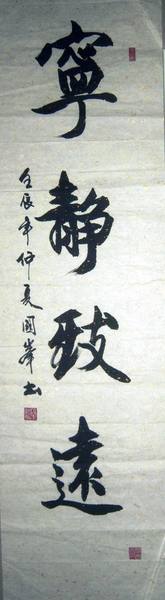 寧靜致遠
壬辰年仲夏國峯书